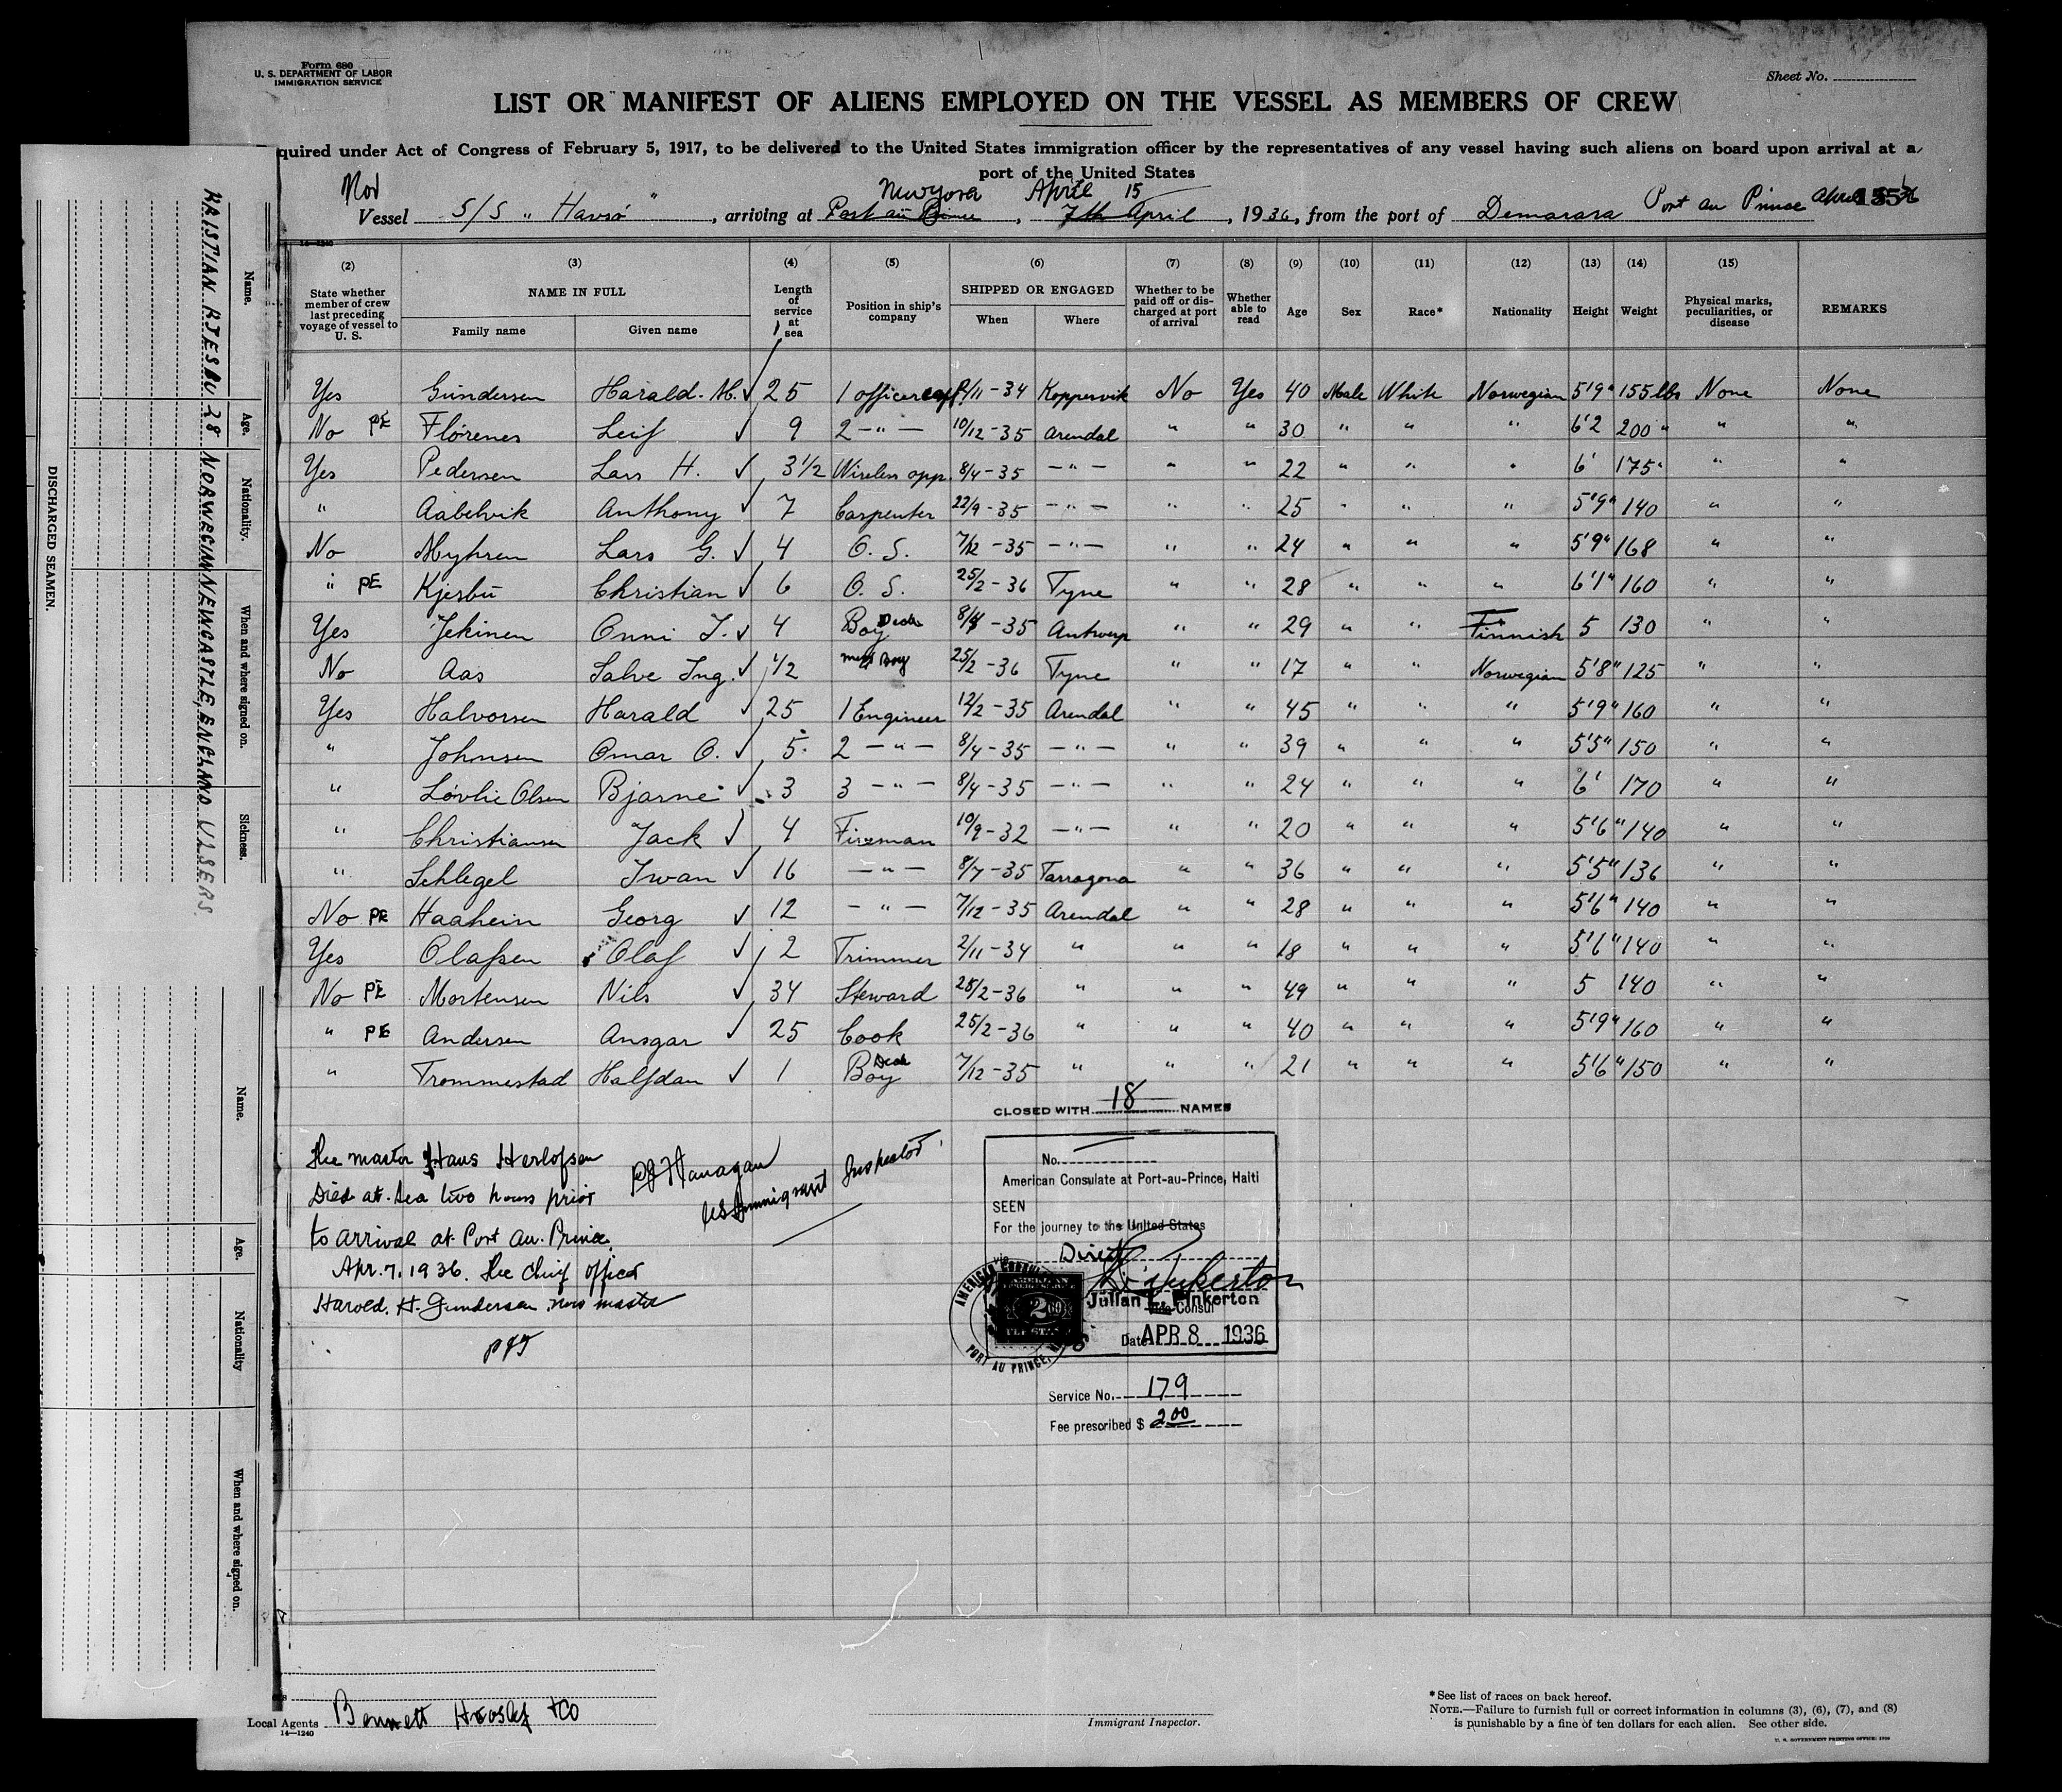 Form 680
U. S. DEPARTMENT OF LABOR
IMMIGRATION SERVICE
Sheet No.
LIST OR MANIFEST OF ALIENS EMPLOYED ON THE VESSEL AS MEMBERS OF CREW
quired under Act of Congress of February 5, 1917, to be delivered to the United States immigration officer by the representatives of any vessel having such aliens on board upon arrival at a
port of the United States
Nor April 15 Port au Prince
Vessel S/S "Havsö", arriving at Port au Prince, 7th April, 1936, from the port of Demarara
14—1240
(2) (3) (4) (5) (6) (7) (8) (9) (10) (11) (12) (13) (14) (15)
State whether member of crew last preceding voyage of vessel to U. S. NAME IN FULL Family name Given name Length of service at sea Position in ship's company SHIPPED OR ENGAGED When Where Whether to be paid off or discharged at port of arrival Whether able to read Age Sex Race* Nationality Height Weight Physical marks, peculiarities, or disease REMARKS
Yes Gundersen Harald. H. 25 1 officer 2/11-34 Koppervik No Yes 40 Male White Norwegian 5'9" 155 lbs None None
No PE Flörenes Leif 9 2 -"- 10/12-35 Arendal " " 30 " " " 6'2 200 " " "
Yes Pedersen Lars H. 3 1/2 Wireless opp. 8/4-35 -"- " " 22 " " " 6' 175 " " "
" Aabelvik Anthony 7 Carpenter 22/9-35 -"- " " 25 " " " 5'9" 140 " "
No Myhren Lars G. 4 O. S. 7/12-35 -"- " " 24 " " " 5'9" 168 " "
" PE Kjesbu Christian 6 O. S. 25/2-36 Tyne " " 28 " " " 6'1" 160 " "
Yes Jekinen Onni J. 4 Boy Deck 8/4-35 Antwerp " " 29 " " Finnish 5 130 " "
No Aas Salve Ing. 1/2 mess Boy 25/2-36 Tyne " " 17 " " Norwegian 5'8" 125 " "
Yes Halvorsen Harald 25 1 Engineer 12/2-35 Arendal " " 45 " " " 5'9" 160 " "
" Johnsen Omar O. 5 2 -"- 8/4-35 -"- " " 39 " " " 5'5" 150 " "
" Lövlie Olsen Bjarne 3 3 -"- 8/4-35 -"- " " 24 " " " 6' 170 " "
" Christiansen Jack 4 Fireman 10/9-32 -"- " " 20 " " " 5'6" 140 " "
" Schlegel Iwan 16 -"- 8/7-35 Tarragona " " 36 " " " 5'5" 136 " "
No PE Haahein Georg 12 -"- 7/12-35 Arendal " " 28 " " " 5'6" 140 " "
Yes Olafsen Olaf 2 Trimmer 2/11-34 " " " 18 " " " 5'6" 140 " "
No PE Mortensen Nils 34 Steward 25/2-36 " " " 49 " " " 5 140 " "
" PE Andersen Ansgar 25 Cook 25/2-36 " " " 40 " " " 5'9" 160 " "
" Trommestad Halfdan 1 Boy Deck 7/12-35 " " " 21 " " " 5'6" 150 " "
CLOSED WITH 18 NAMES
The master Hans Herlofsen
Died at Sea two hours prior
to arrival at Port Au Prince.
Apr. 7. 1936. The Chief officer
Harold. H. Gundersen now master
PJF
PJ Flanagan
US Immigrant Inspector
No.
American Consulate at Port-au-Prince, Haiti
SEEN
For the journey to the United States
via Direct
Julian L. Pinkerton
Vice Consul
Date APR 8 1936
AMERICAN CONSULATE
PORT AU PRINCE
Service No. 179
Fee prescribed $ 2.00
Local Agents Bennett
14—1240
Immigrant Inspector.
*See list of races on back hereof.
NOTE.—Failure to furnish full or correct information in columns (3), (6), (7), and (8)
is punishable by a fine of ten dollars for each alien. See other side.
U. S. GOVERNMENT PRINTING OFFICE
DISCHARGED SEAMEN.
Name. Age. Nationality. When and where signed on. Sickness.
KRISTIAN KJESBU 28 NORWEGIAN NEWCASTLE, ENGLAND ULSERS.
Name. Age. Nationality When and where signed on.